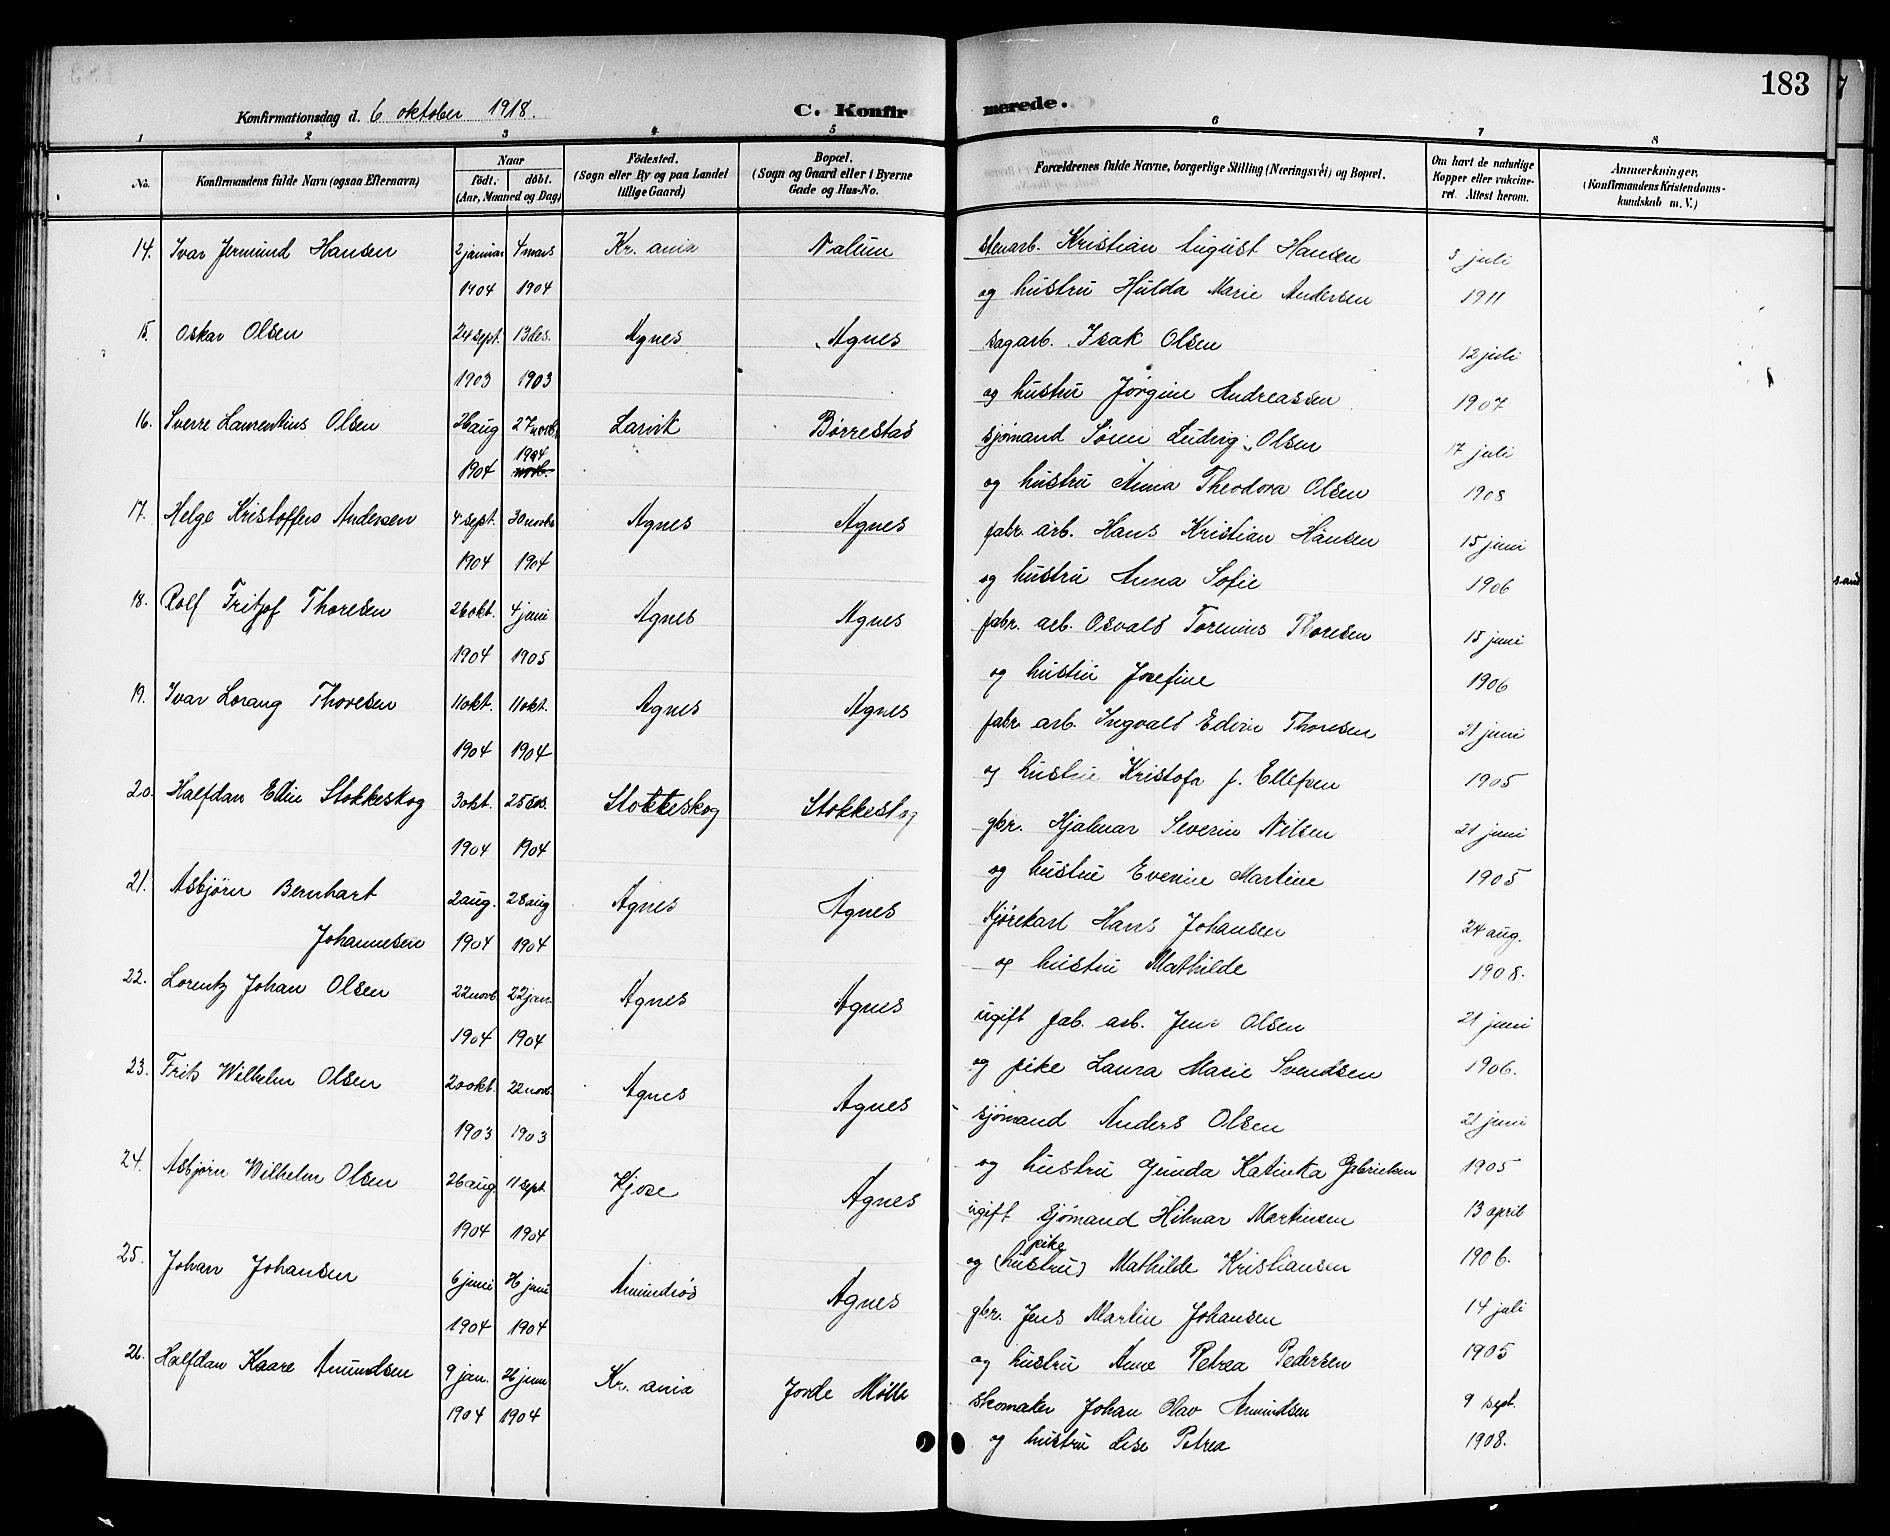 183
Konfirmationsdag d. 6 oktober 1918.
C. Konfirmerede.
1 2 3 4 5 6 7 8
No.
Konfirmandens fulde Navn (ogsaa Efternavn)
Naar
født. døbt.
(Aar, Maaned og Dag)
Födested.
(Sogn eller By og paa Landet
tillige Gaard)
Bopæl.
(Sogn og Gaard eller i Byerne
Gade og Hus-No.
Forældrenes fulde Navne, borgerlige Stilling (Næringsvei) og Bopæl.
Om havt de naturlige
Kopper eller vakcine-
ret. Attest herom.
Anmærkninger.
(Konfirmandens Kristendoms-
kundskab m. V.)
14. Ivar Jermund Hansen 2 januar 4 mars Kr. ania Nalum stenarb. Kristian August Hansen 3 juli
1904 1904 og hustru Hulda Marie Andersen 1911
15. Oskar Olsen 24 sept. 13 des. Agnes Agnes sagarb. Isak Olsen 12 juli
1903 1903 og hustru Jørgine Andreassen 1907
16. Sverre Laurentius Olsen 26 aug 27 novb. Larvik Børrestad sjømand Søren Ludvig Olsen 17 juli
1904 1904 novb. og hustru Anna Theodora Olsen 1908
17. Helge Kristoffers Andersen 4 sept. 30 novbr Agnes Agnes fabr. arb. Hans Kristian Hansen 15 juni
1904 1904 og hustru Anna Sofie 1906
18. Rolf Fritjof Thoresen 26 okt. 4 juni Agnes Agnes fabr. arb. Osvald Torenius Thoresen 15 juni
1904 1905 og hustru Josefine 1906
19. Ivar Lorang Thoresen 11 okt. 11 okt. Agnes Agnes fabr. arb. Ingvald Edvin Thoresen 21 juni
1904 1904 og hustru Kristofa f. Ellefsen 1905
20. Halfdan Edin Stokkeskog 3 okt. 25 des. Stokkeskog Stokkeskog gbr. Hjalmar Severin Nilsen 21 juni
1904 1904 og hustru Evenine Martine 1905
21. Asbjørn Bernhart 2 aug. 28 aug Agnes Agnes Kjørekarl Hans Johansen 24 aug.
Johannesen 1904 1904 og hustru Mathilde 1908.
22. Lorentz Johan Olsen 22 novb 22 jan. Agnes Agnes ugift fab. arb. Jens Olsen 21 juni
1904 1904 og pike Laura Marie Svendsen 1906.
23. Frits Wilhelm Olsen 20 okt. 22 novb. Agnes Agnes sjømand Anders Olsen 21 juni
1903 1903 og hustru Gunda Katinka Gabrielsen 1905
24. Asbjørn Wilhelm Olsen 26 aug. 11 sept. Kjose Agnes ugift sjømand Hilmar Martinsen 13 april
1904 1904 og (hustru) pike Mathilde Kristiansen 1906.
25. Johan Johansen 6 juni 26 juni Amundrød Agnes gbr. Jens Martin Johansen 14 juli
1904 1904 og hustru Anne Petrea Pedersen 1905
26. Halfdan Kaare Amundsen 9 jan. 26 juni Kr. ania Jorde Mølle skomaker Johan Olav Amundsen 9 sept.
1904 1904 og hustru Lise Petrea 1908.